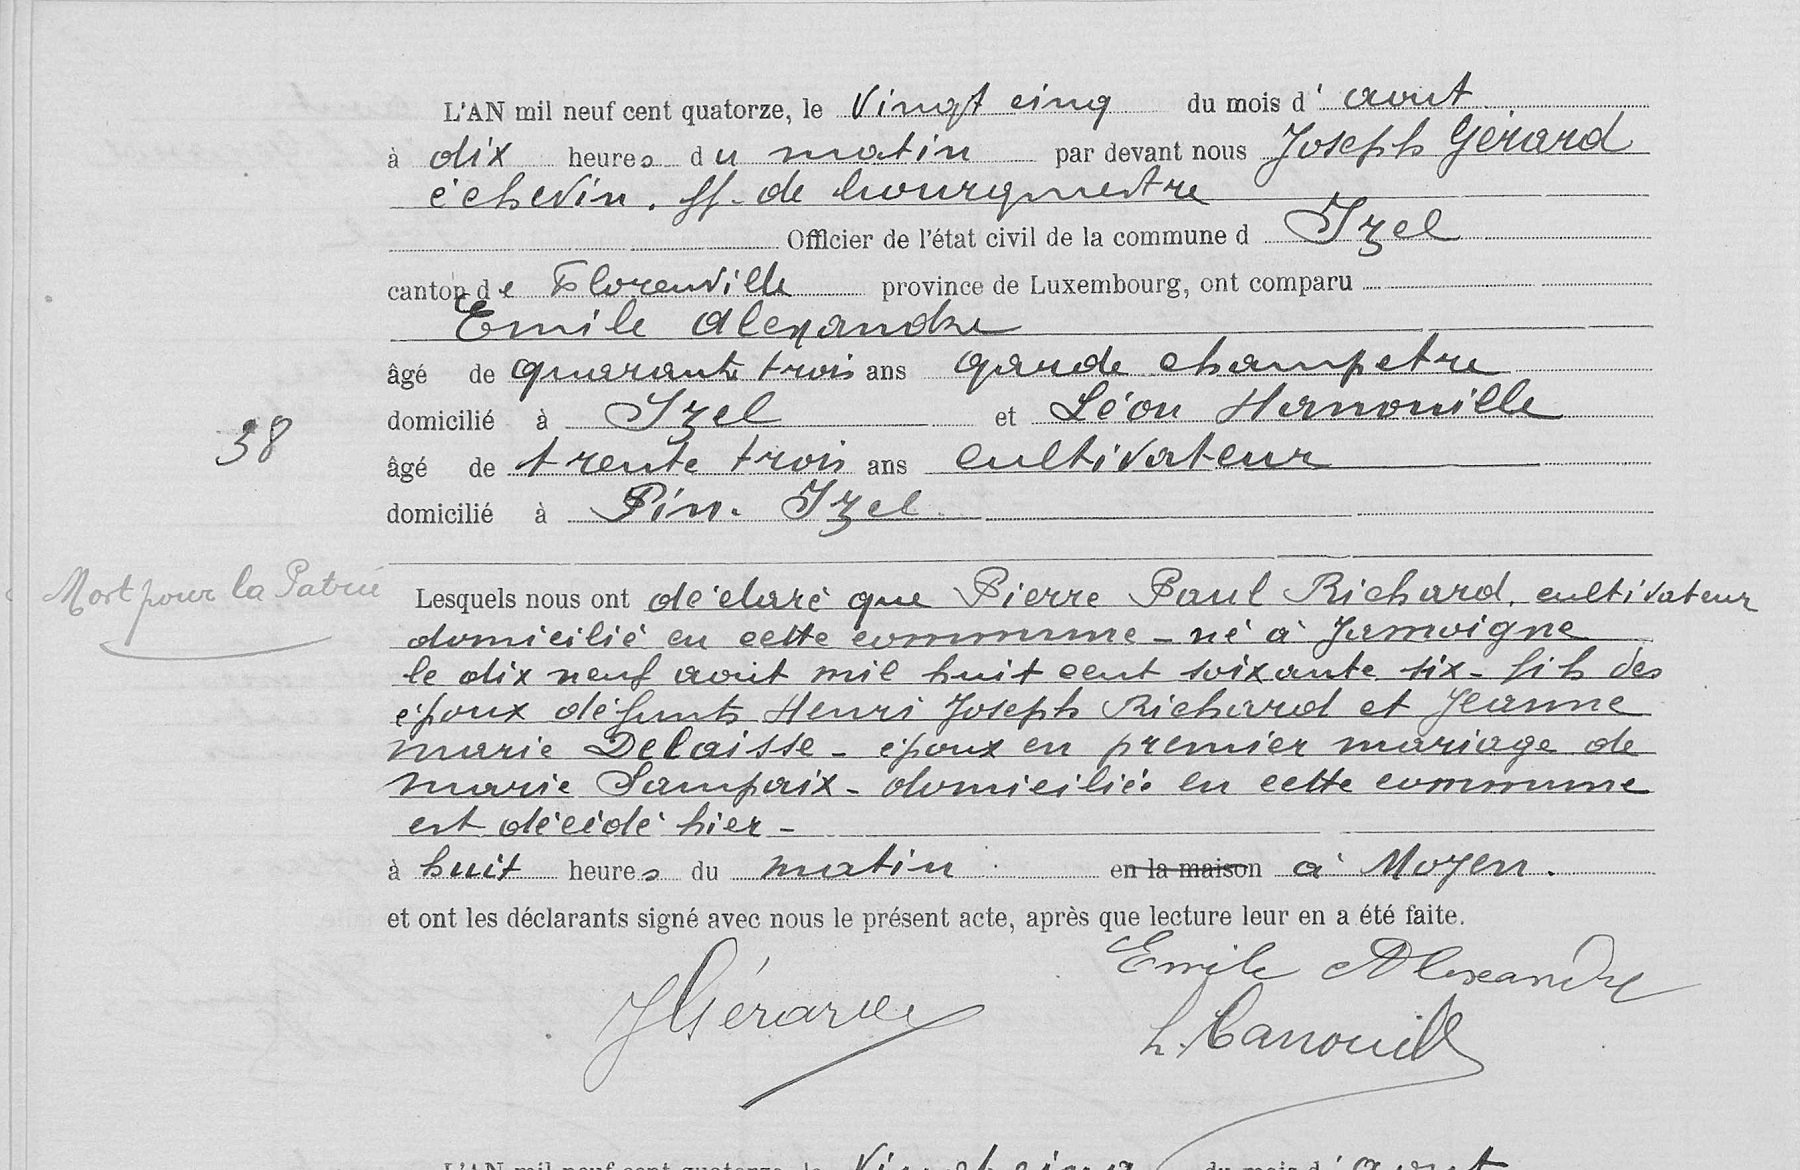 L'AN mil neuf cent quatorze, le vingt cinq du mois d' aout
à dix heures du matin par devant nous Joseph Gérard
échevin. ff. de bourgmestre
Officier de l'état civil de la commune d Izel
canton de Florenville province de Luxembourg, ont comparu
Emile Alexandre
âgé de quarante trois ans garde champetre
domicilié à Izel et Léon Hanouille
38
âgé de trente trois ans cultivateur
domicilié à Pin. Izel
Mort pour la Patrie
Lesquels nous ont déclaré que Pierre Paul Richard, cultivateur
domicilié en cette commune - né à Jamoigne
le dix neuf aout mil huit cent soixante six - fils des
époux défunts Henri Joseph Richard et Jeanne
marie Delaisse - époux en premier mariage de
marie Sampaix - domiciliée en cette commune
est décédé hier -
à huit heures du matin en la maison à Moyen.
et ont les déclarants signé avec nous le présent acte, après que lecture leur en a été faite.
Emile Alexandre
J Gérard
L. Hanouille
L'AN mil neuf cent quatorze, le Vingt cinq du mois d' aout